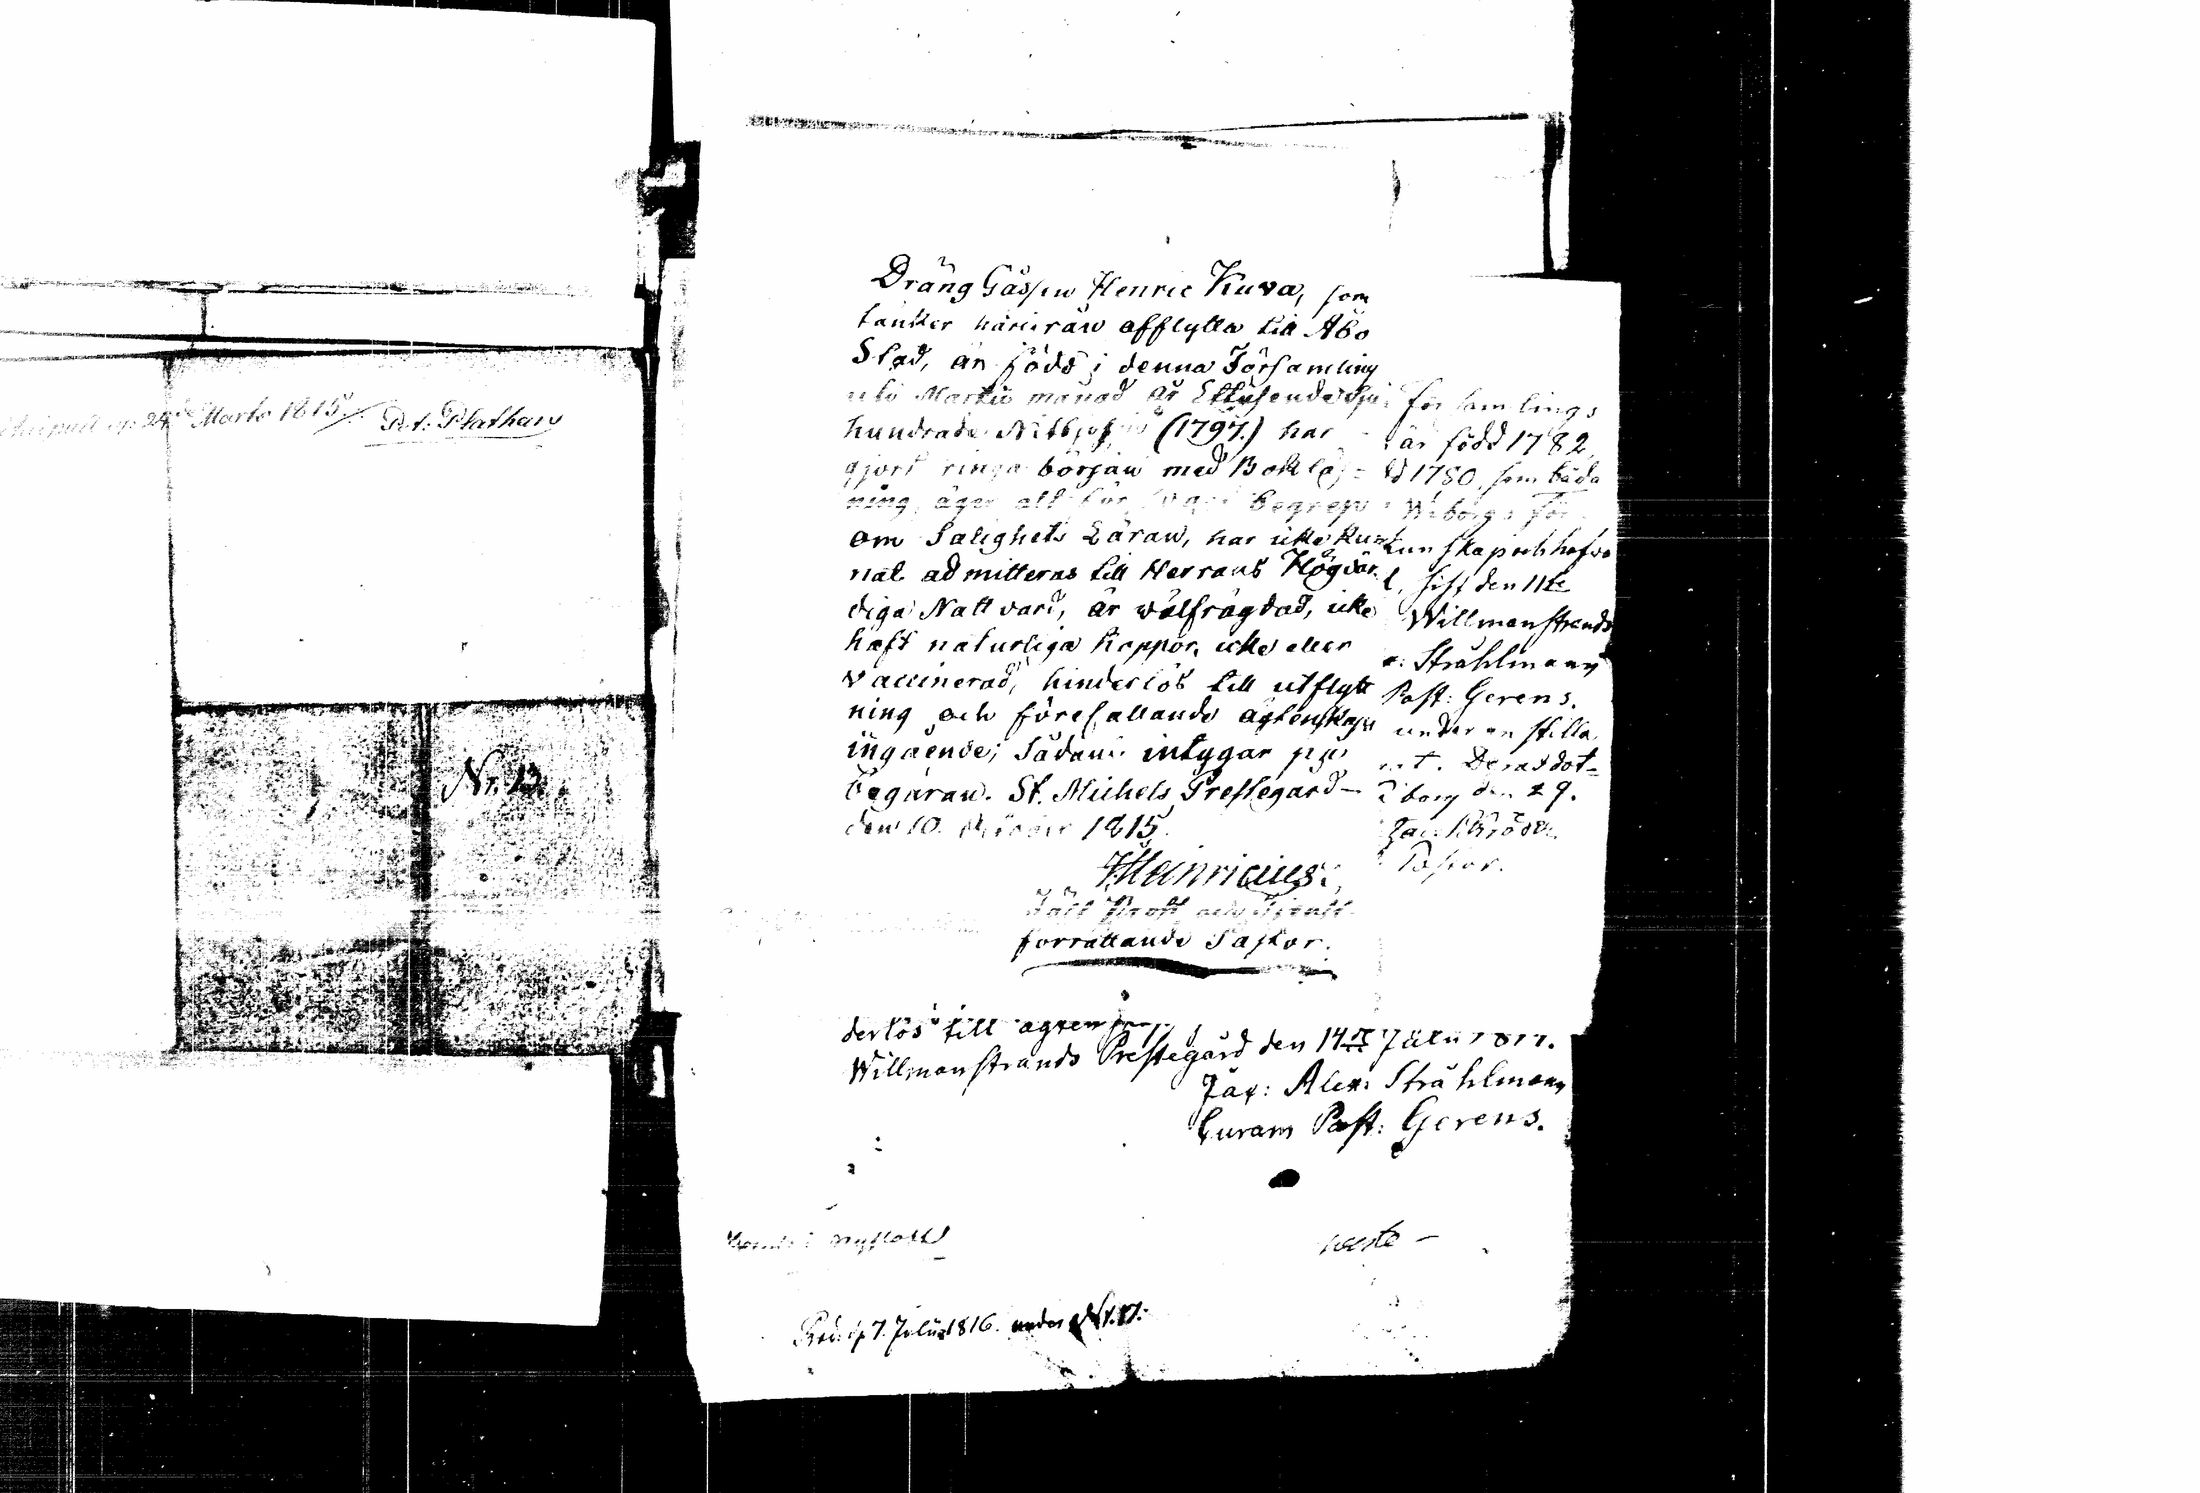 24de Martii 1815 P. t. Plathan
Nr. 12.
Dräng Gåssen Henric Kuva, som
tänker härifrån afflytta till Åbo
Stad, är född i denna Församling
uti Martii månad år Ettusendesju
hundrade Nittiosju (1797.) har
gjort ringa början med Boklä=
ning, äger allt för svagt begrep
om Salighets Läran, har icke kun
nat admitteras till Herrans Högvär
diga Nattvard, är wälfrägdad, icke
haft naturliga Koppor, icke eller
vaccinerad, hinderlös till utflytt
ning och förefallande ägtenskaps
ingående; Sådant intygar på
begäran. St. Michels Prestegård
den 10. 1815.
Heinricius.
Prost och
förrättande Pastor.
Församlings
är född 1782
1780, som båda
Wiborgs För
kunskap och hafva
sist den 11te
Willmanstrands
Stråhlmann
Past: Gerens.
under en stilla
Deras dot=
borg den 29.
Pastor.
derlös till ägtenskap
Willmanstrands Prestegård den 14de Julii 1811.
Jac: Alex: Stråhlmann
Curam Past: Gerens.
Prod: d. 7. Julii 1816. under